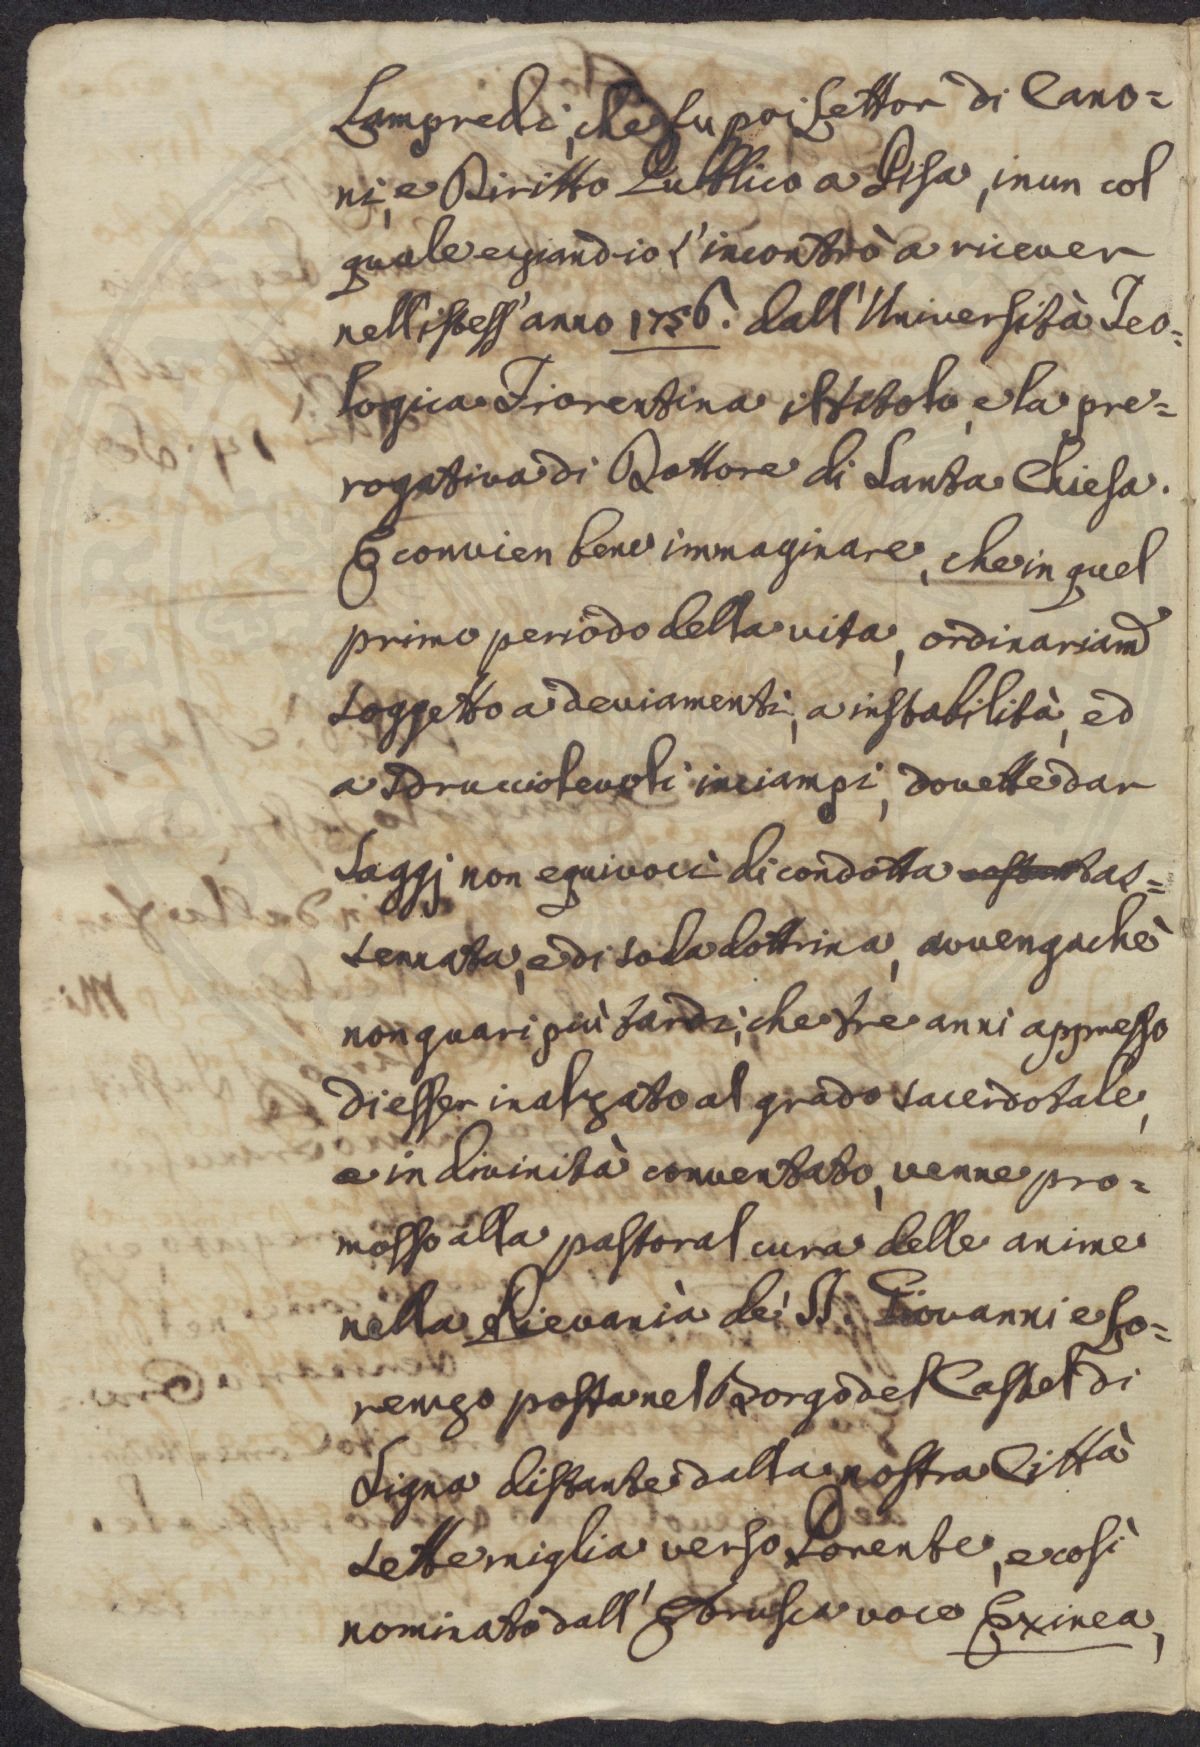 Lampredi, che fu poi Lettor di Cano=
ni, e Diritto Pubblico a Pisa, inun col
quale eziandio s'incontrò a ricever
nell'istess'anno 1756. dall'Università Teo=
logica Fiorentina il titolo, e la pre=
rogativa di Dottore di Santa Chiesa.
E convien bene immaginare, che in quel
primo periodo della vita, ordinariamᵉ
soggetto a deviamenti, a instabilità, ed
a sdrucciolevoli inciampi, dovette dar
saggj non equivoci di condotta as=
sennata, e di soda dottrina, avvengachè
non guari più tardi, che tre anni appresso
di esser inalzato al grado sacerdotale,
e in divinità conventato, venne pro=
mosso alla pastoral cura delle anime
nella Pievania de' SS. Giovanni e Lo=
renzo posta nel Borgo del Castel di
Signa distante dalla nostra Città
sette miglia verso Ponente, e così
nominato dall'Etrusca voce Exinea,